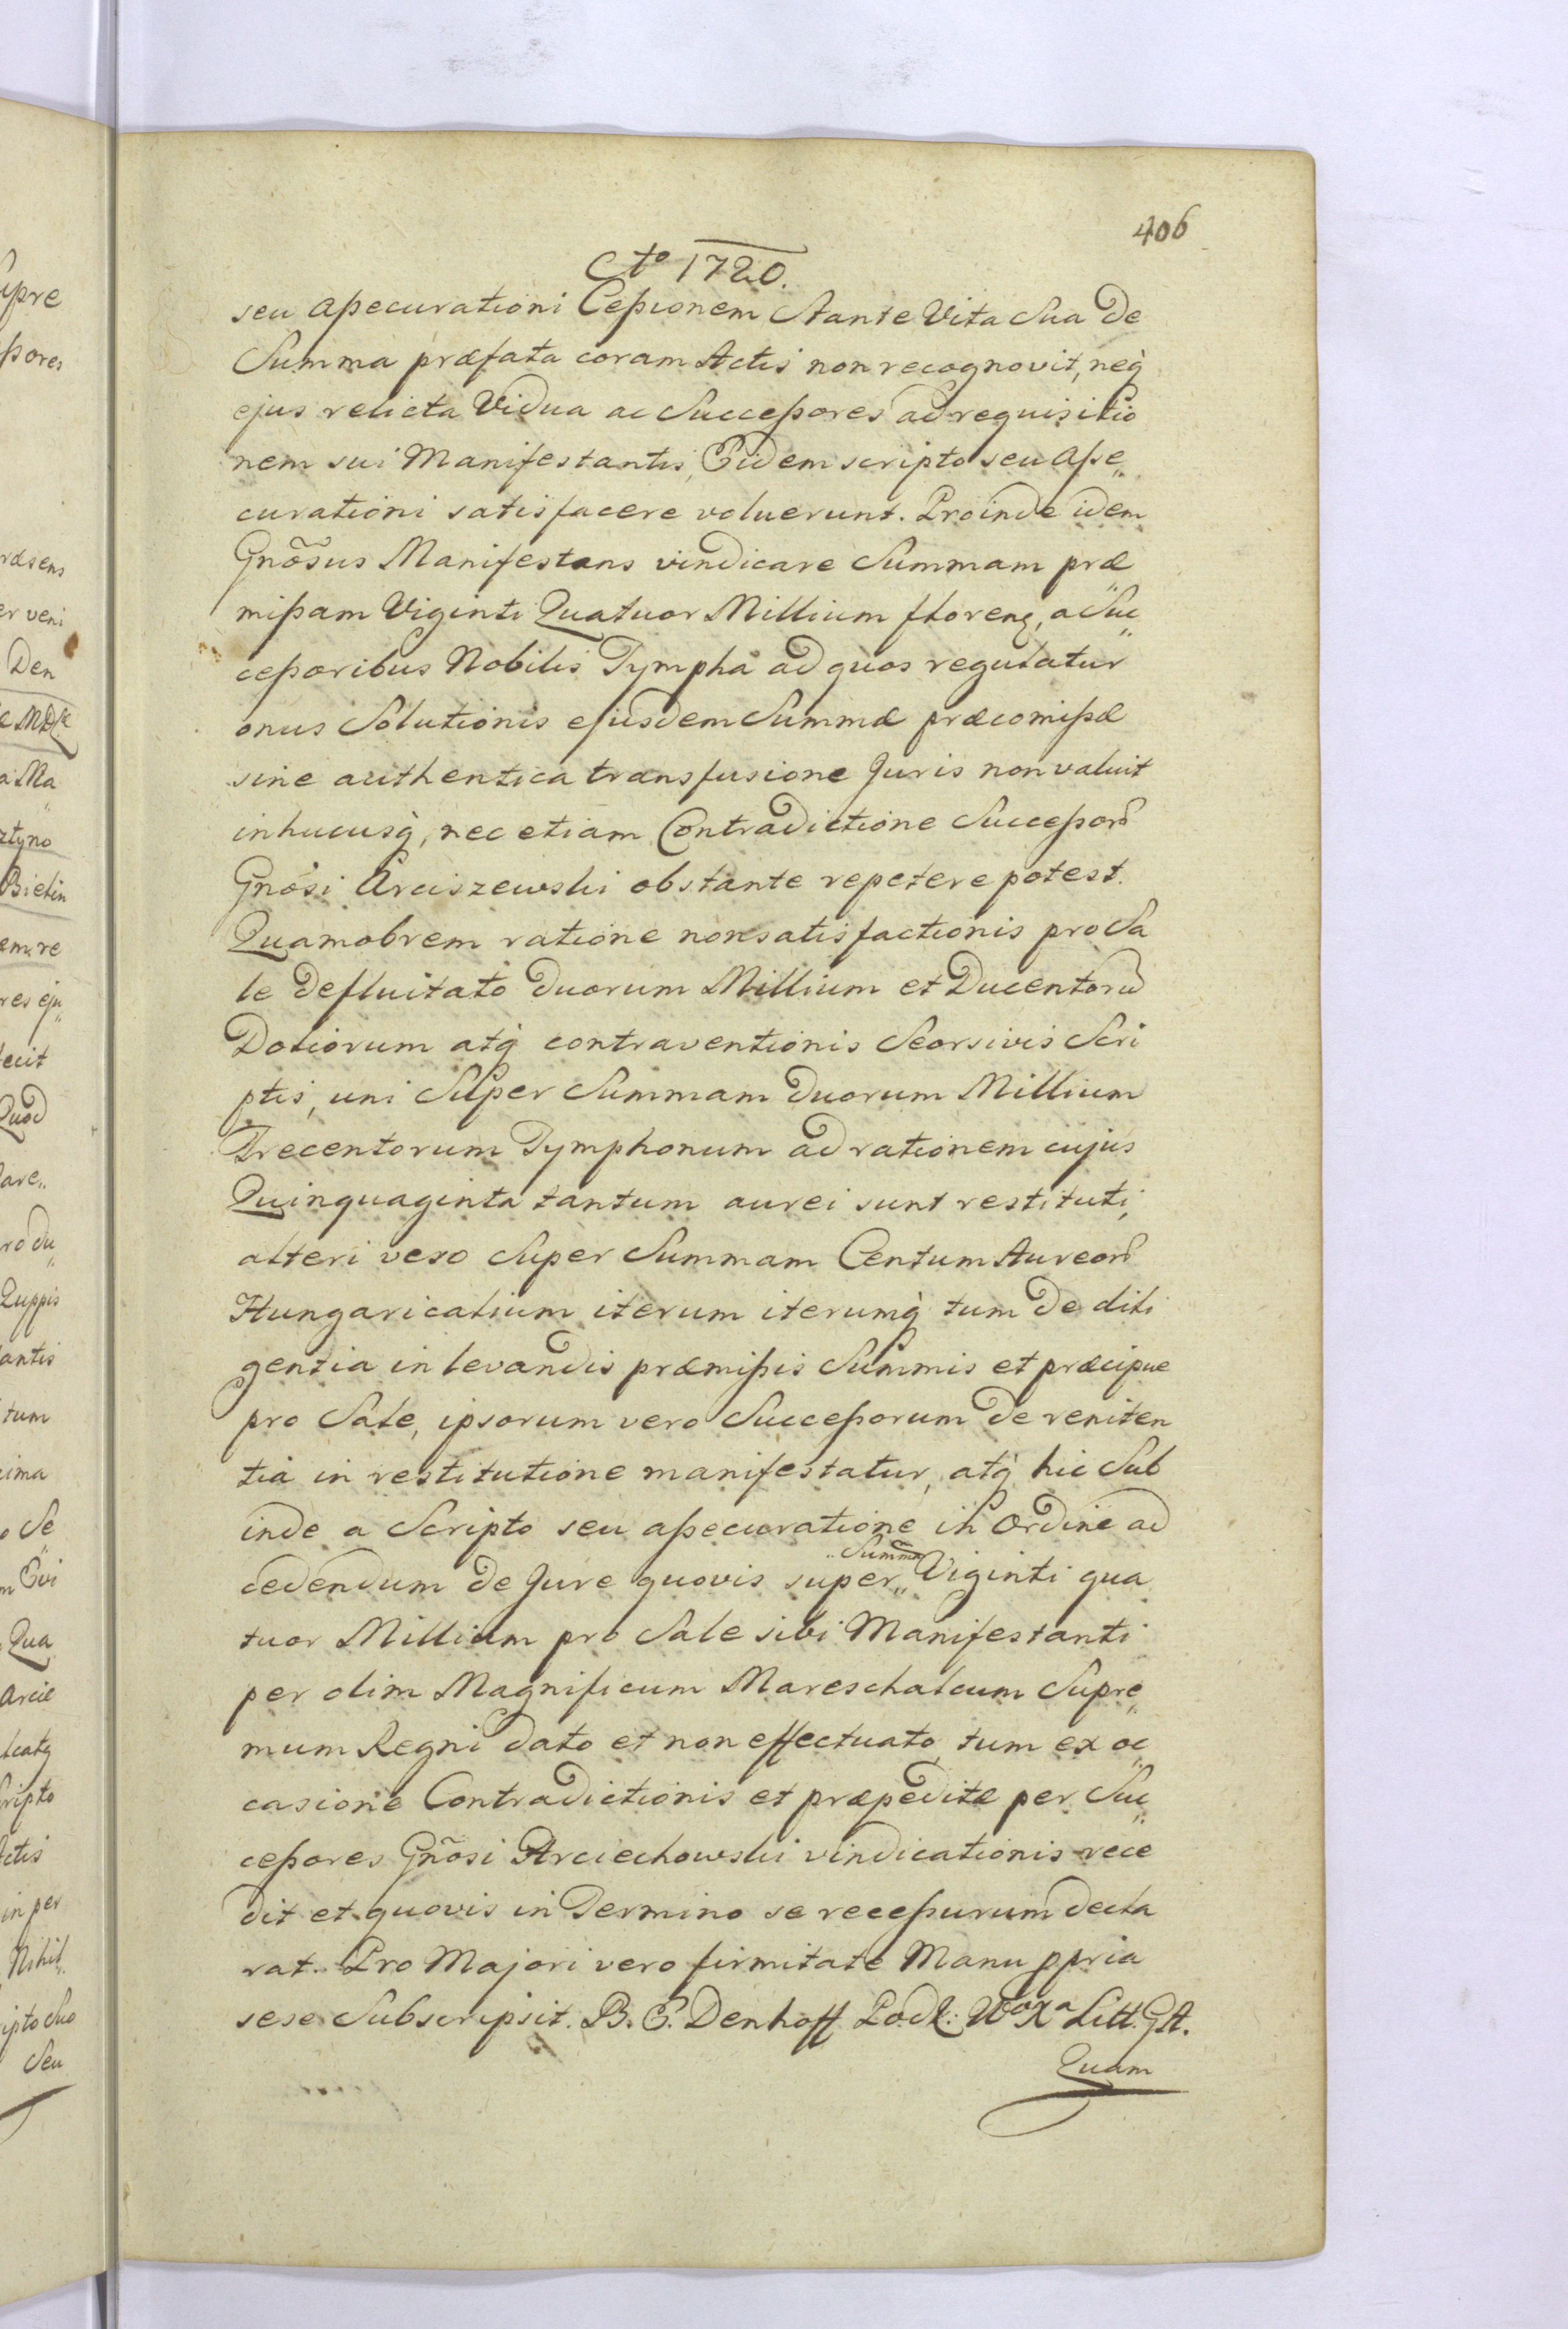 406
Cto 1720.
seu aßecurationi Ceßionem Stante Vita Sua de
Summa præfata coram Actis non recognovit, neq̀
ejus relicta Vidua ac Succeßores ad requisitio
nem sui Manifestantis, Eidem scripto seu aße„
curationi satisfacere voluerunt. Proinde idem
Gnõsus Manifestans vindicare Summam præ
mißam Viginti Quatuor Millium floren, a Suc„
ceßoribus Nobilis Tympha ad quos regulatur
onus Solutionis ejusdem Summæ præcomißæ
sine authentica transfusione Juris non valuit
inhucusq̀, nec etiam Contradictione Succeßorũ
Gnõsi Arciszewski obstante repetere potest.
Quamobrem ratione nonsatisfactionis pro Sa
le defluitato duorum Millium et Ducentorũ
Doliorum atq̀ contraventionis Seorsivis Scri
ptis, uni Super Summam duorum Millium
Trecentorum Tymphonum ad rationem cujus
Quinquaginta tantum aurei sunt restituti,
alteri vero Super Summam Centum Aureorũ
Hungaricalium iterum iterumq̀ tum de dili
gentia in levandis præmißis Summis et præcipue
pro Sale, ipsorum vero Succeßorum de reniten
tia in restitutione manifestatur, atq̀ hic Sub
inde a Scripto seu aßecuratione in Ordine ad
cedendum de Jure quovis super „Summa„ Viginti qua
tuor Millium pro Sale sibi Manifestanti
per olim Magnificum Mareschalcum Supre„
mum Regni dato et non effectuato, tum ex oc„
casione Contradictionis et præpeditæ per Suc„
ceßores Gñosi Arciechowski vindicationis rece
dit et quovis in Termino se receßurum decla
rat. Pro Majori vero firmitate Manu ppria
sese Subscripsit. B. E. Denhoff Podk: WoXa Litt. G.A.
Quam